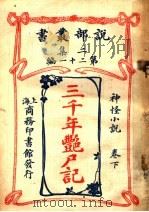 說部叢書
集
第二十一編
神怪小說 卷下
三千年艷尸記
上海商務印書館發行